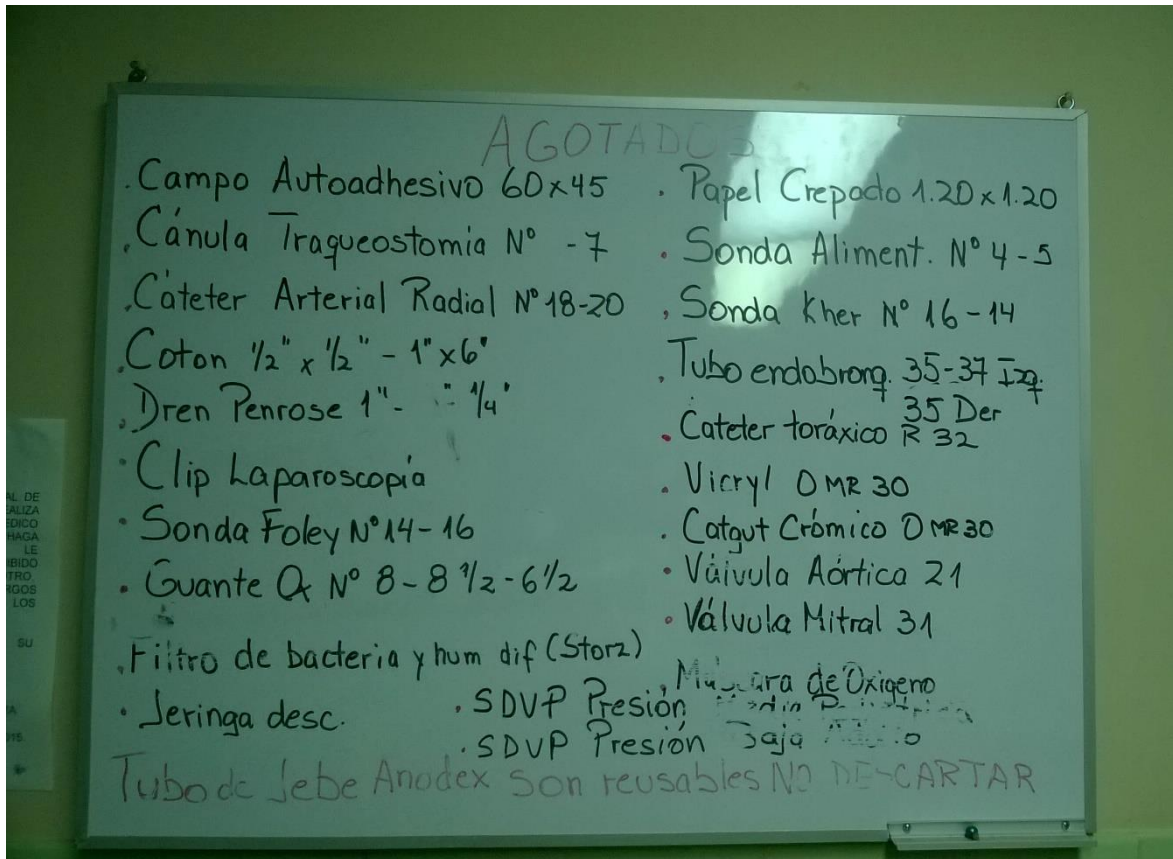 AGOTADOS
. Campo Autoadhesivo 60x45
. Cánula Traqueostomia Nº -7
. Cáteter Arterial Radial Nº 18-20
. Coton 1/2" x 1/2" - 1" x 6"
. Dren Penrose 1" - " 1/4"
. Clip Laparoscopía
. Sonda Foley Nº 14-16
. Guante Qx Nº 8 - 8 1/2 - 6 1/2
. Filtro de bacteria y hum dif (Storz)
. Jeringa desc.
. Papel Crepado 1.20 x 1.20
. Sonda Aliment. Nº 4-5
. Sonda Kher Nº 16-14
. Tubo endobronq. 35-37 Izq.
35 Der
. Cateter toráxico R 32
. Vicryl 0 MR 30
. Catgut Crómico 0 MR 30
. Válvula Aórtica 21
. Válvula Mitral 31
. Máscara de Oxigeno
. SDVP Presión
. SDVP Presión Baja
Tubo de Jebe Anodex son reusables NO DESCARTAR
AL DE
EALIZA
EDICO
HAGA
LE
IBIDO
TRO
RGOS
LOS
SU